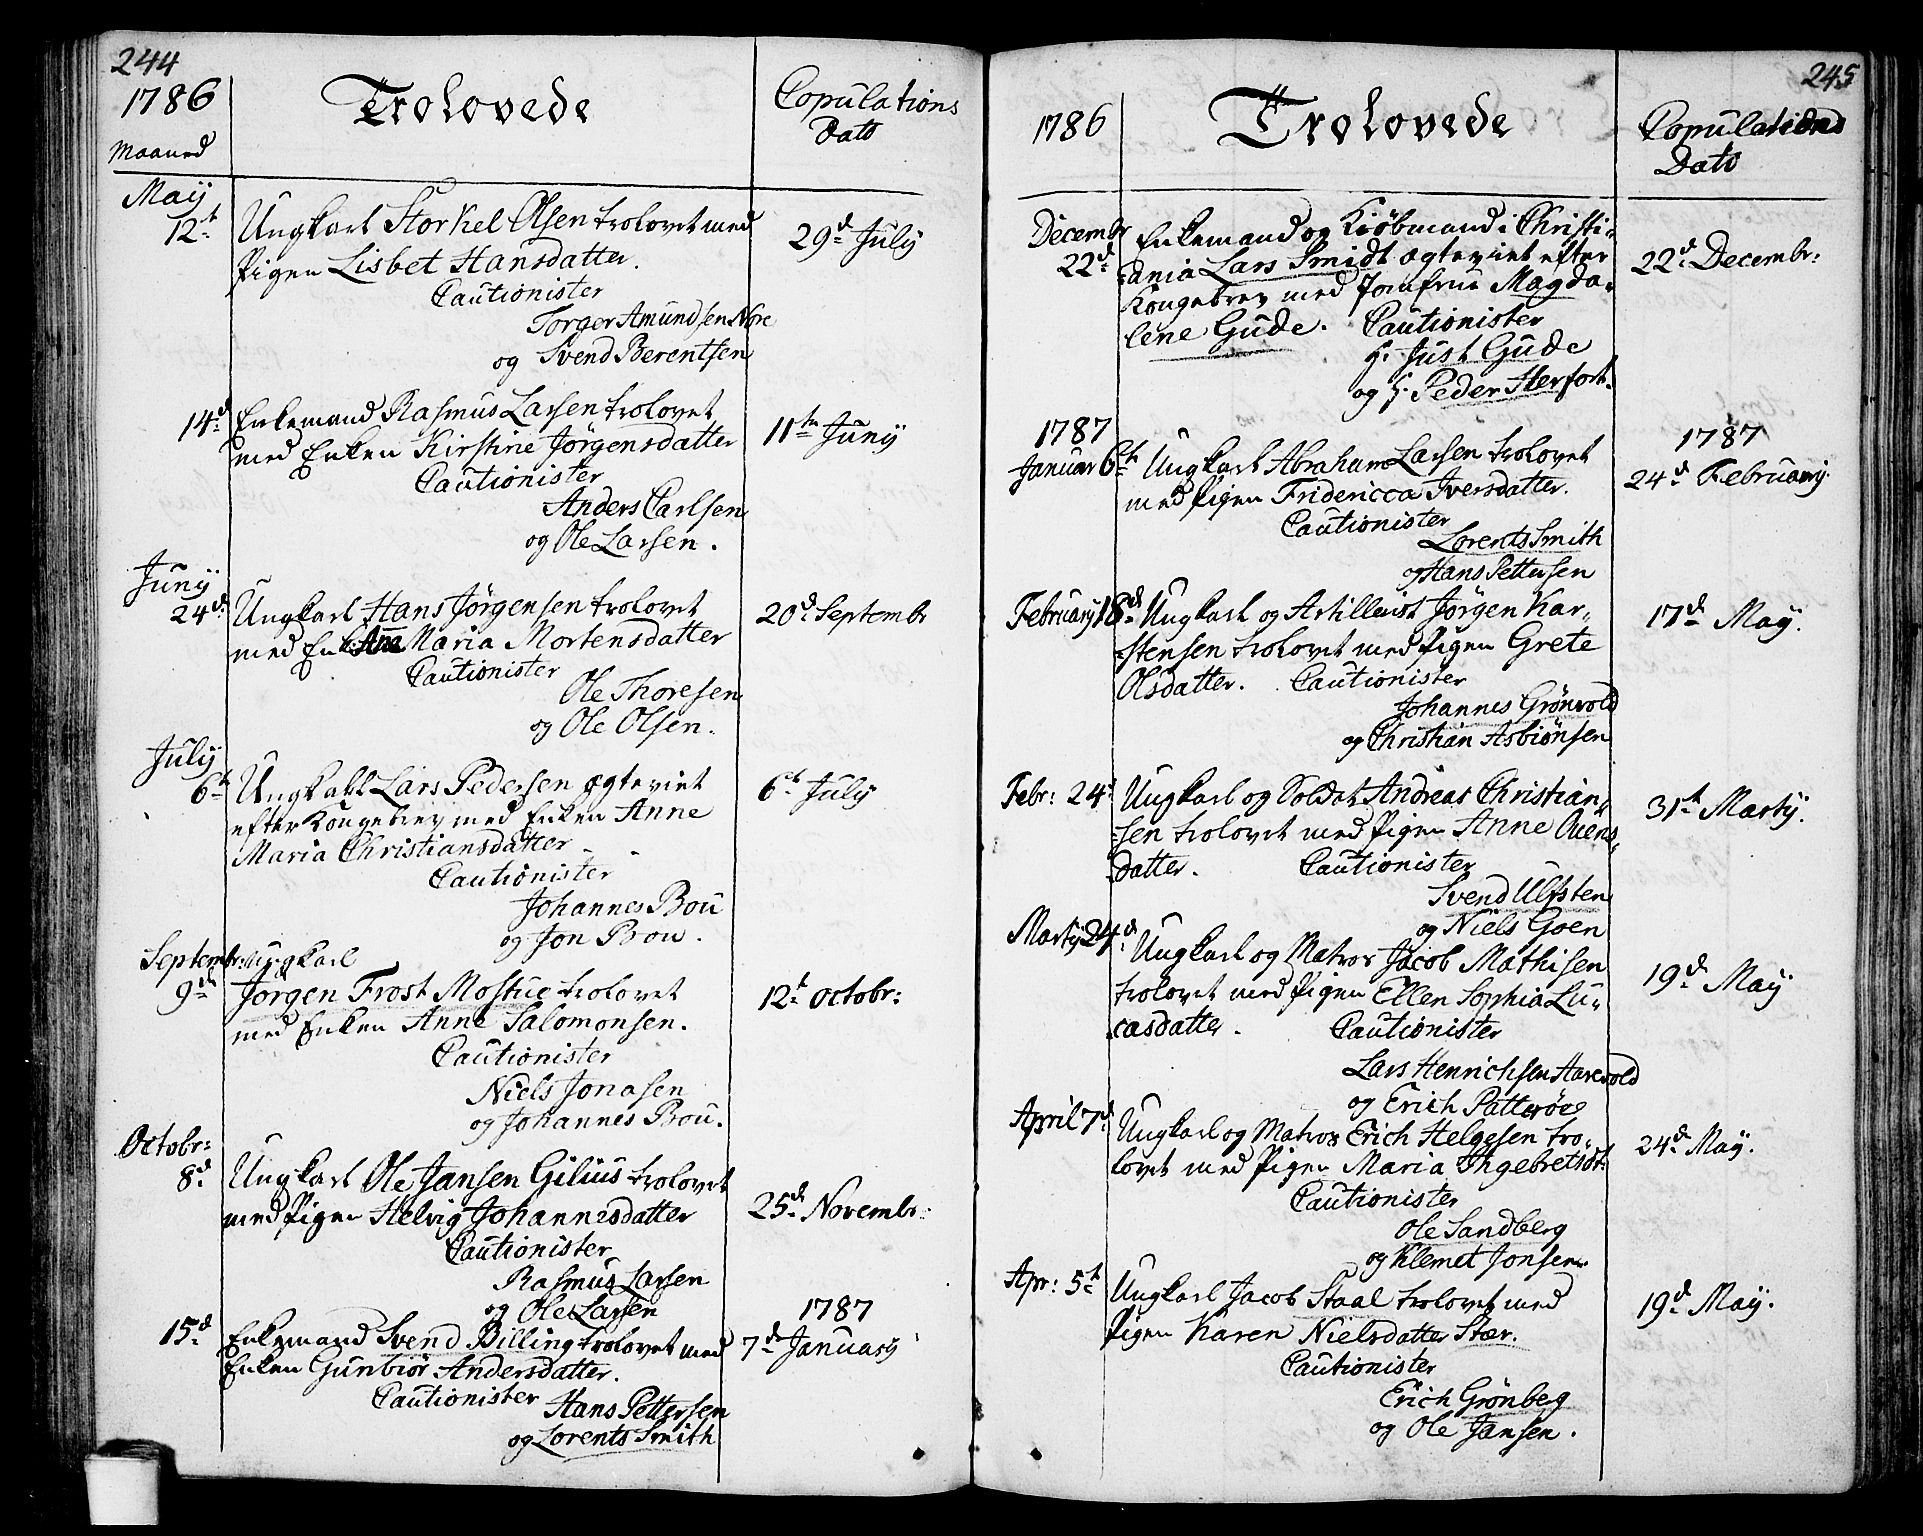 244
1786
Trolovede
Copulations
Dato
Maaned
May
12t
Ungkarl Storkel Olsen trolovet med
Pigen Lisbet Hansdatter.
29d July
Cautionister
Torger Amundsen Nore
og Svend Berentsen
14d Enkemand Rasmus Larsen trolovet
med Enken Kirstine Jörgensdatter
11te Juny
Cautionister
Anders Carlsen
og Ole Larsen.
Juny
24d Ungkarl Hans Jörgensen trolovet
med Enk: Ane Maria Mortensdatter
20d Septembr
Cautionister
Ole Thoresen
og Ole Olsen.
July
6t Ungkarl Lars Pedersen ægteviet
efter Kongebrev med Enken Anne
Maria Christiansdatter
6t July
Cautionister
Johannes Bou
og Jon Bou.
Septembr: Ungkarl
9d Jörgen Frost Mostue trolovet
med Enken Anne Salomonsen.
12t Octobr:
Cautionister
Niels Jonasen
og Johannes Bou.
Octobr:
8d Ungkarl Ole Jansen Gilius trolovet
med Pigen Helvig Johannesdatter
25d Novembr:
Cautionister
Rasmus Larsen
og Ole Larsen
15d Enkemand Svend Billing trolovet med
Enken Gunbiör Andersdatter.
1787
7d January
Cautionister Hans Pettersen
og Lorents Smith
245
1786
Trolovede
Copulations
Dato
Decembr
22d Enkemand og Kiöbmand i Christi-
ania Lars Smidt ægteviet efter
Kongebrev med Jomfrue Magda-
lene Gude. Cautionister
22d Decembr:
H. Just Gude
og H. Peder Herfort.
1787
Januar 6t Ungkarl Abraham Larsen trolovet
med Pigen Fridericca Iversdatter.
1787
24d February
Cautionister
Lorents Smith
og Hans Pettersen
February 18d Ungkarl og Artillerist Jörgen Kar-
stensen trolovet med Pigen Grete
Olsdatter. Cautionister
17d May.
Johannes Grönvold
og Christian Asbiönsen
Febr: 24d Ungkarl og Soldat Andreas Christian-
sen trolovet med Pigen Anne Ouens-
datter. Cautionister
31t Marty.
Svend Ulfsten
og Niels Goen
Marty 24d Ungkarl og Matros Jacob Mathisen
trolovet med Pigen Ellen Sophia Lu-
casdatter. Cautionister
19d May
Lars Henrichsen Harevold
og Erich Patteröe
April 7d Ungkarl og Matros Erich Helgesen tro-
lovet med Pigen Maria Ingebretsdt:
24d May.
Cautionister
Ole Sandberg
og Klemet Jonsen
Apr: 5t Ungkarl Jacob Staal trolovet med
Pigen Karen Nielsdatter Stær.
19d May.
Cautionister
Erich Grönberg
og Ole Jansen.